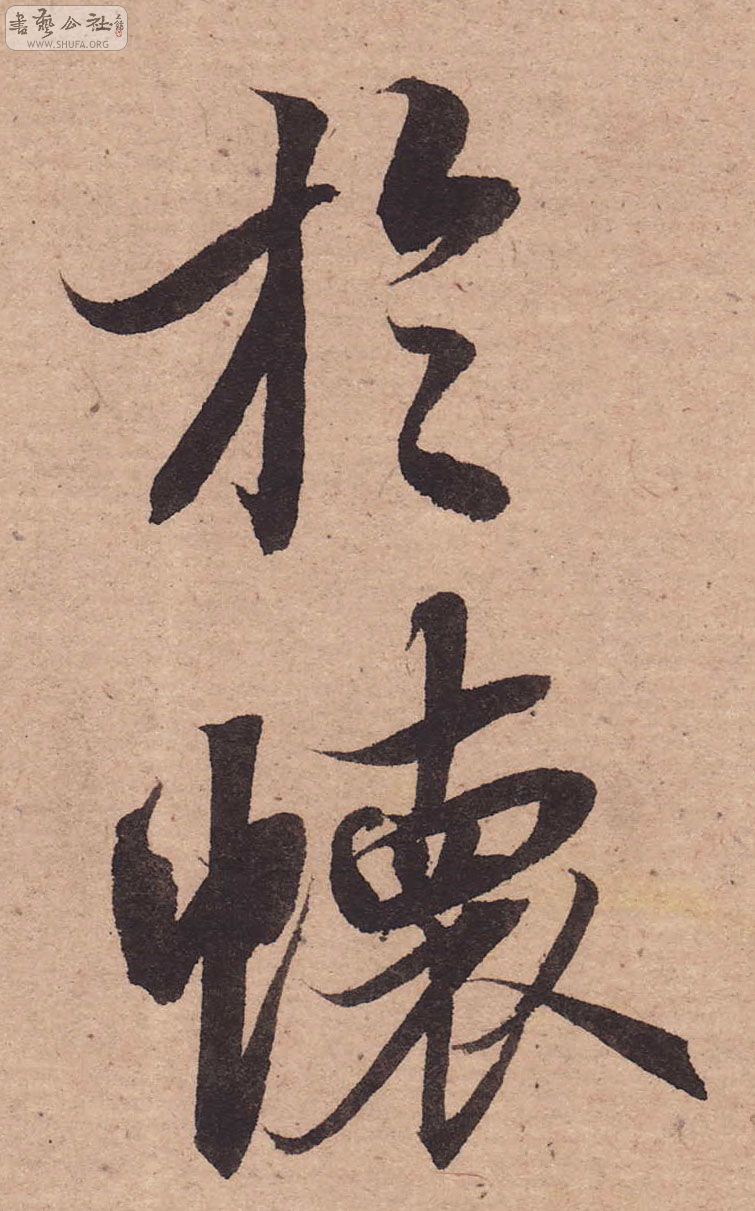 書藝公社
WWW.SHUFA.ORG
於懷